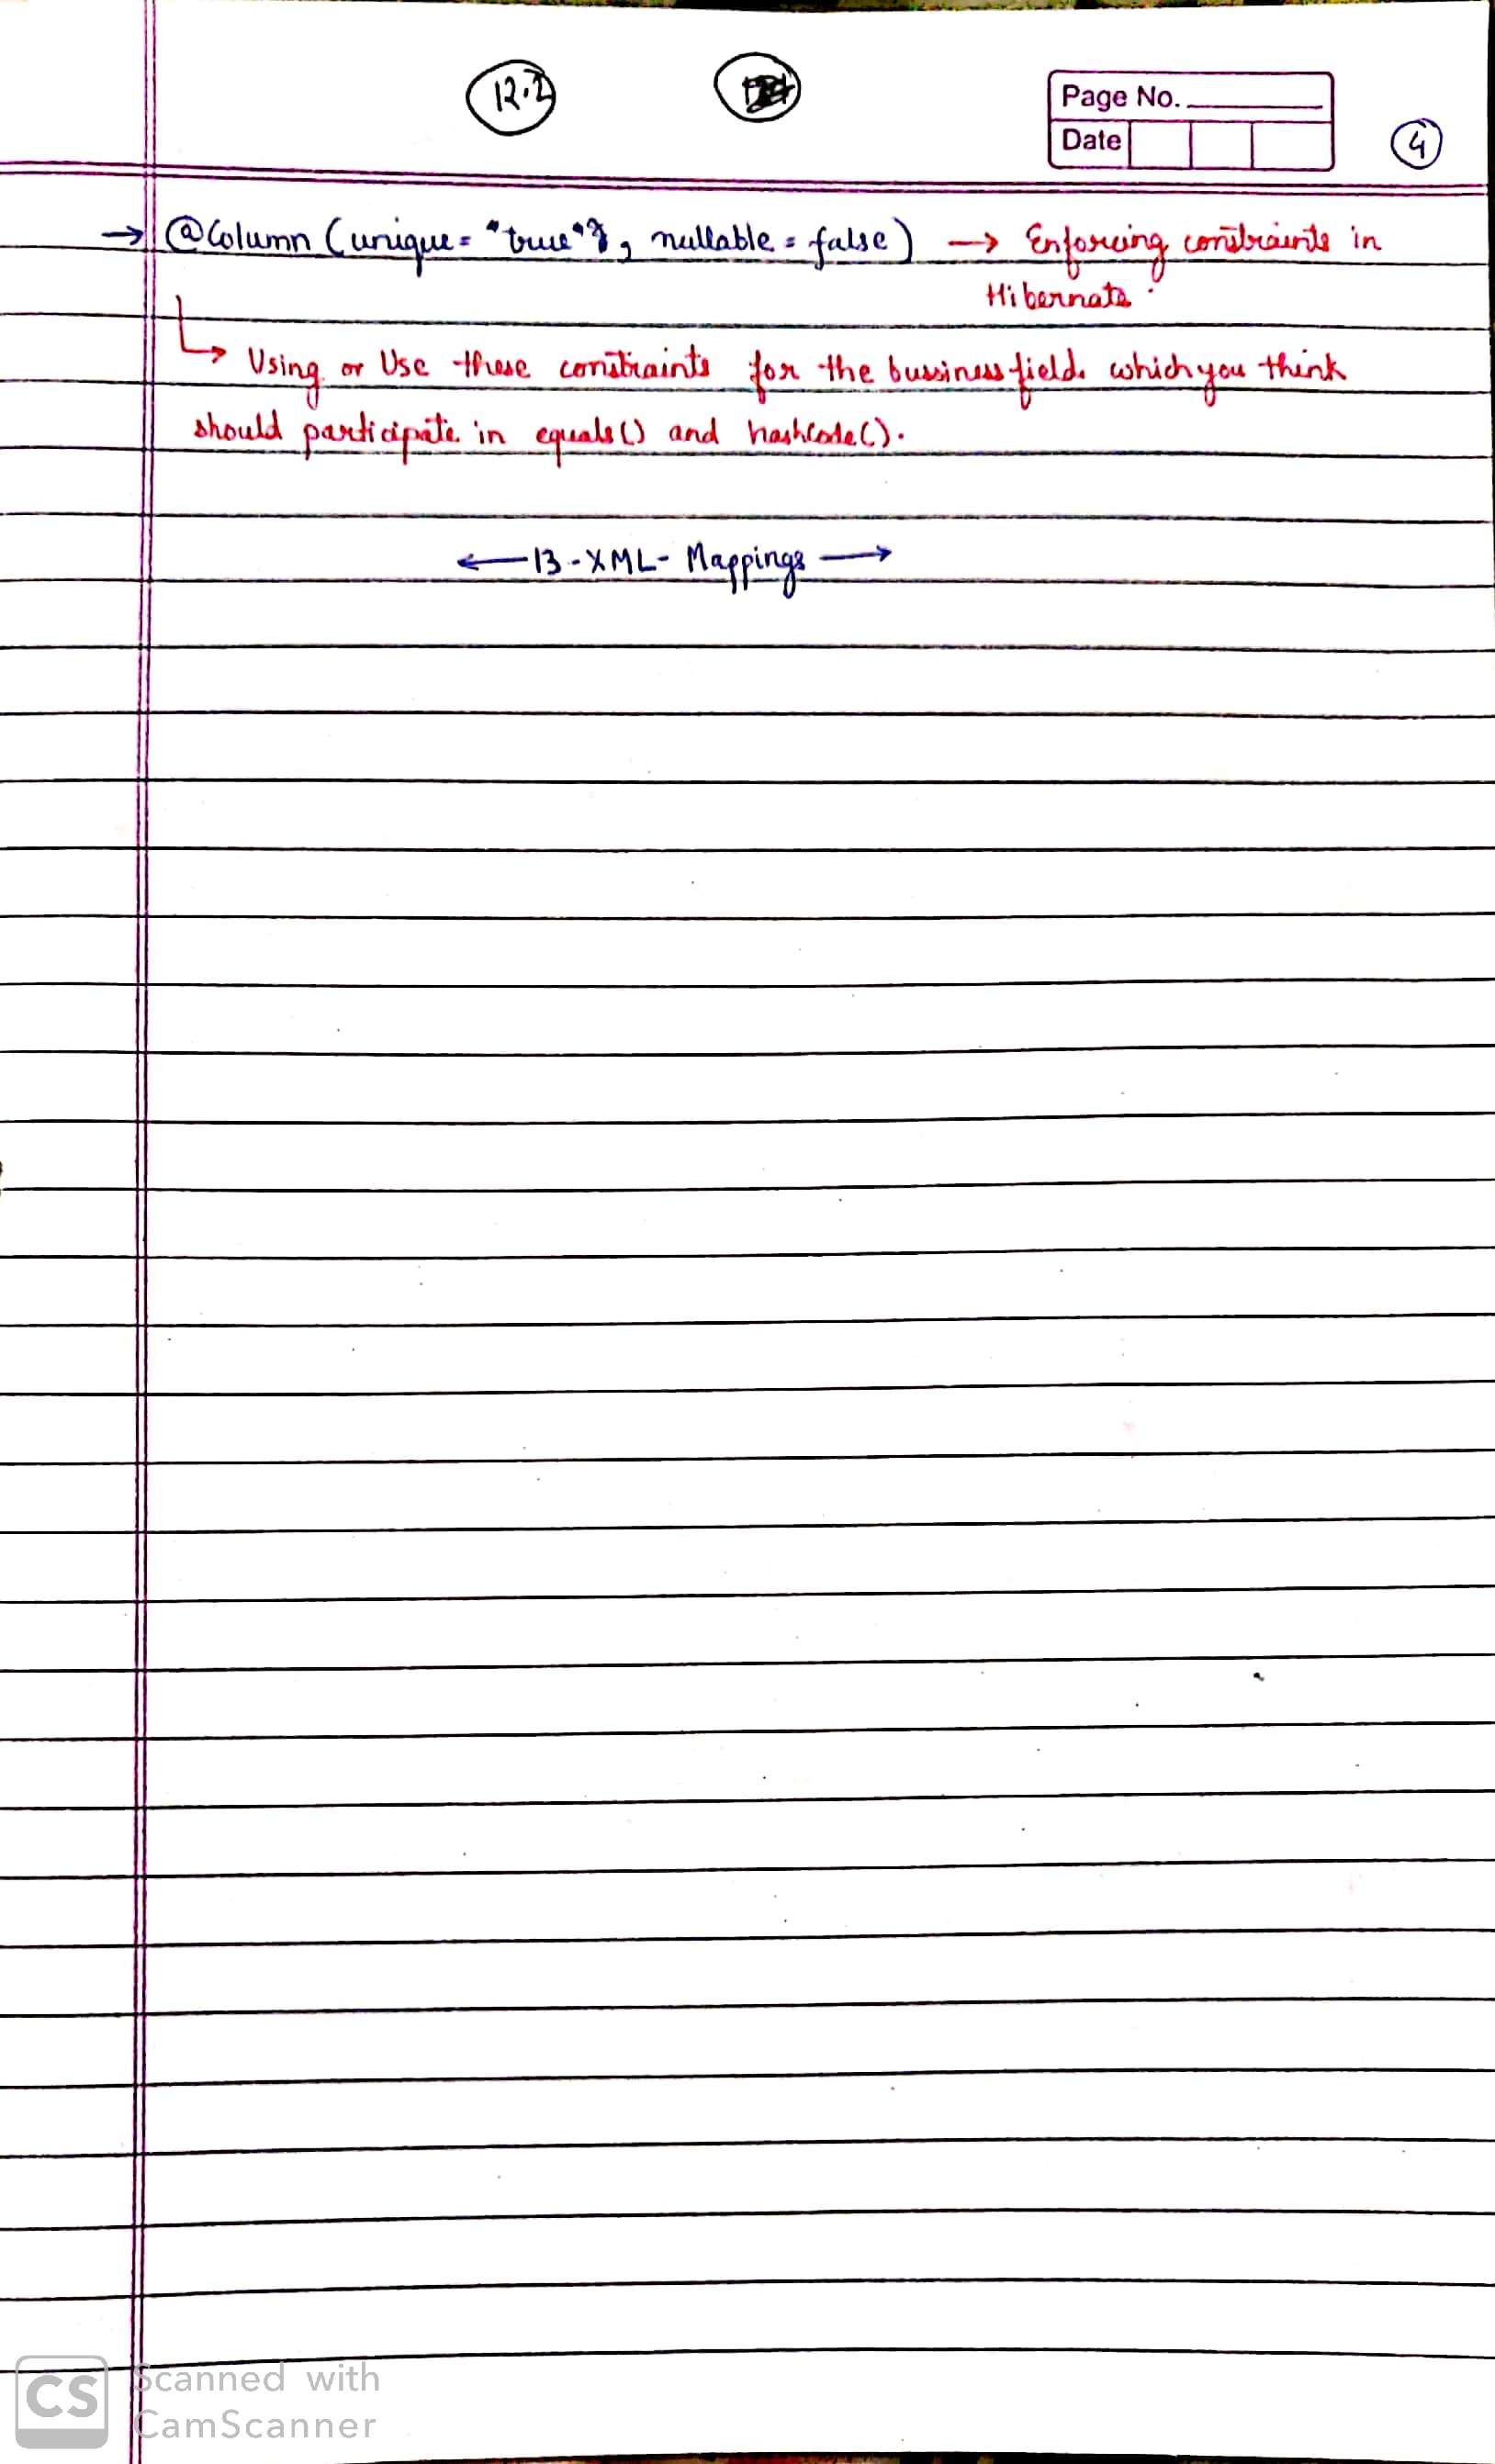 12.2
Page No.
Date
4
→ @Column (unique = "true", nullable = false) → Enforcing constraints in
Hibernate.
↳ Using or Use these constraints for the bussiness fields which you think
should participate in equals() and hashcode().
← 13 - XML - Mappings →
CS Scanned with
CamScanner